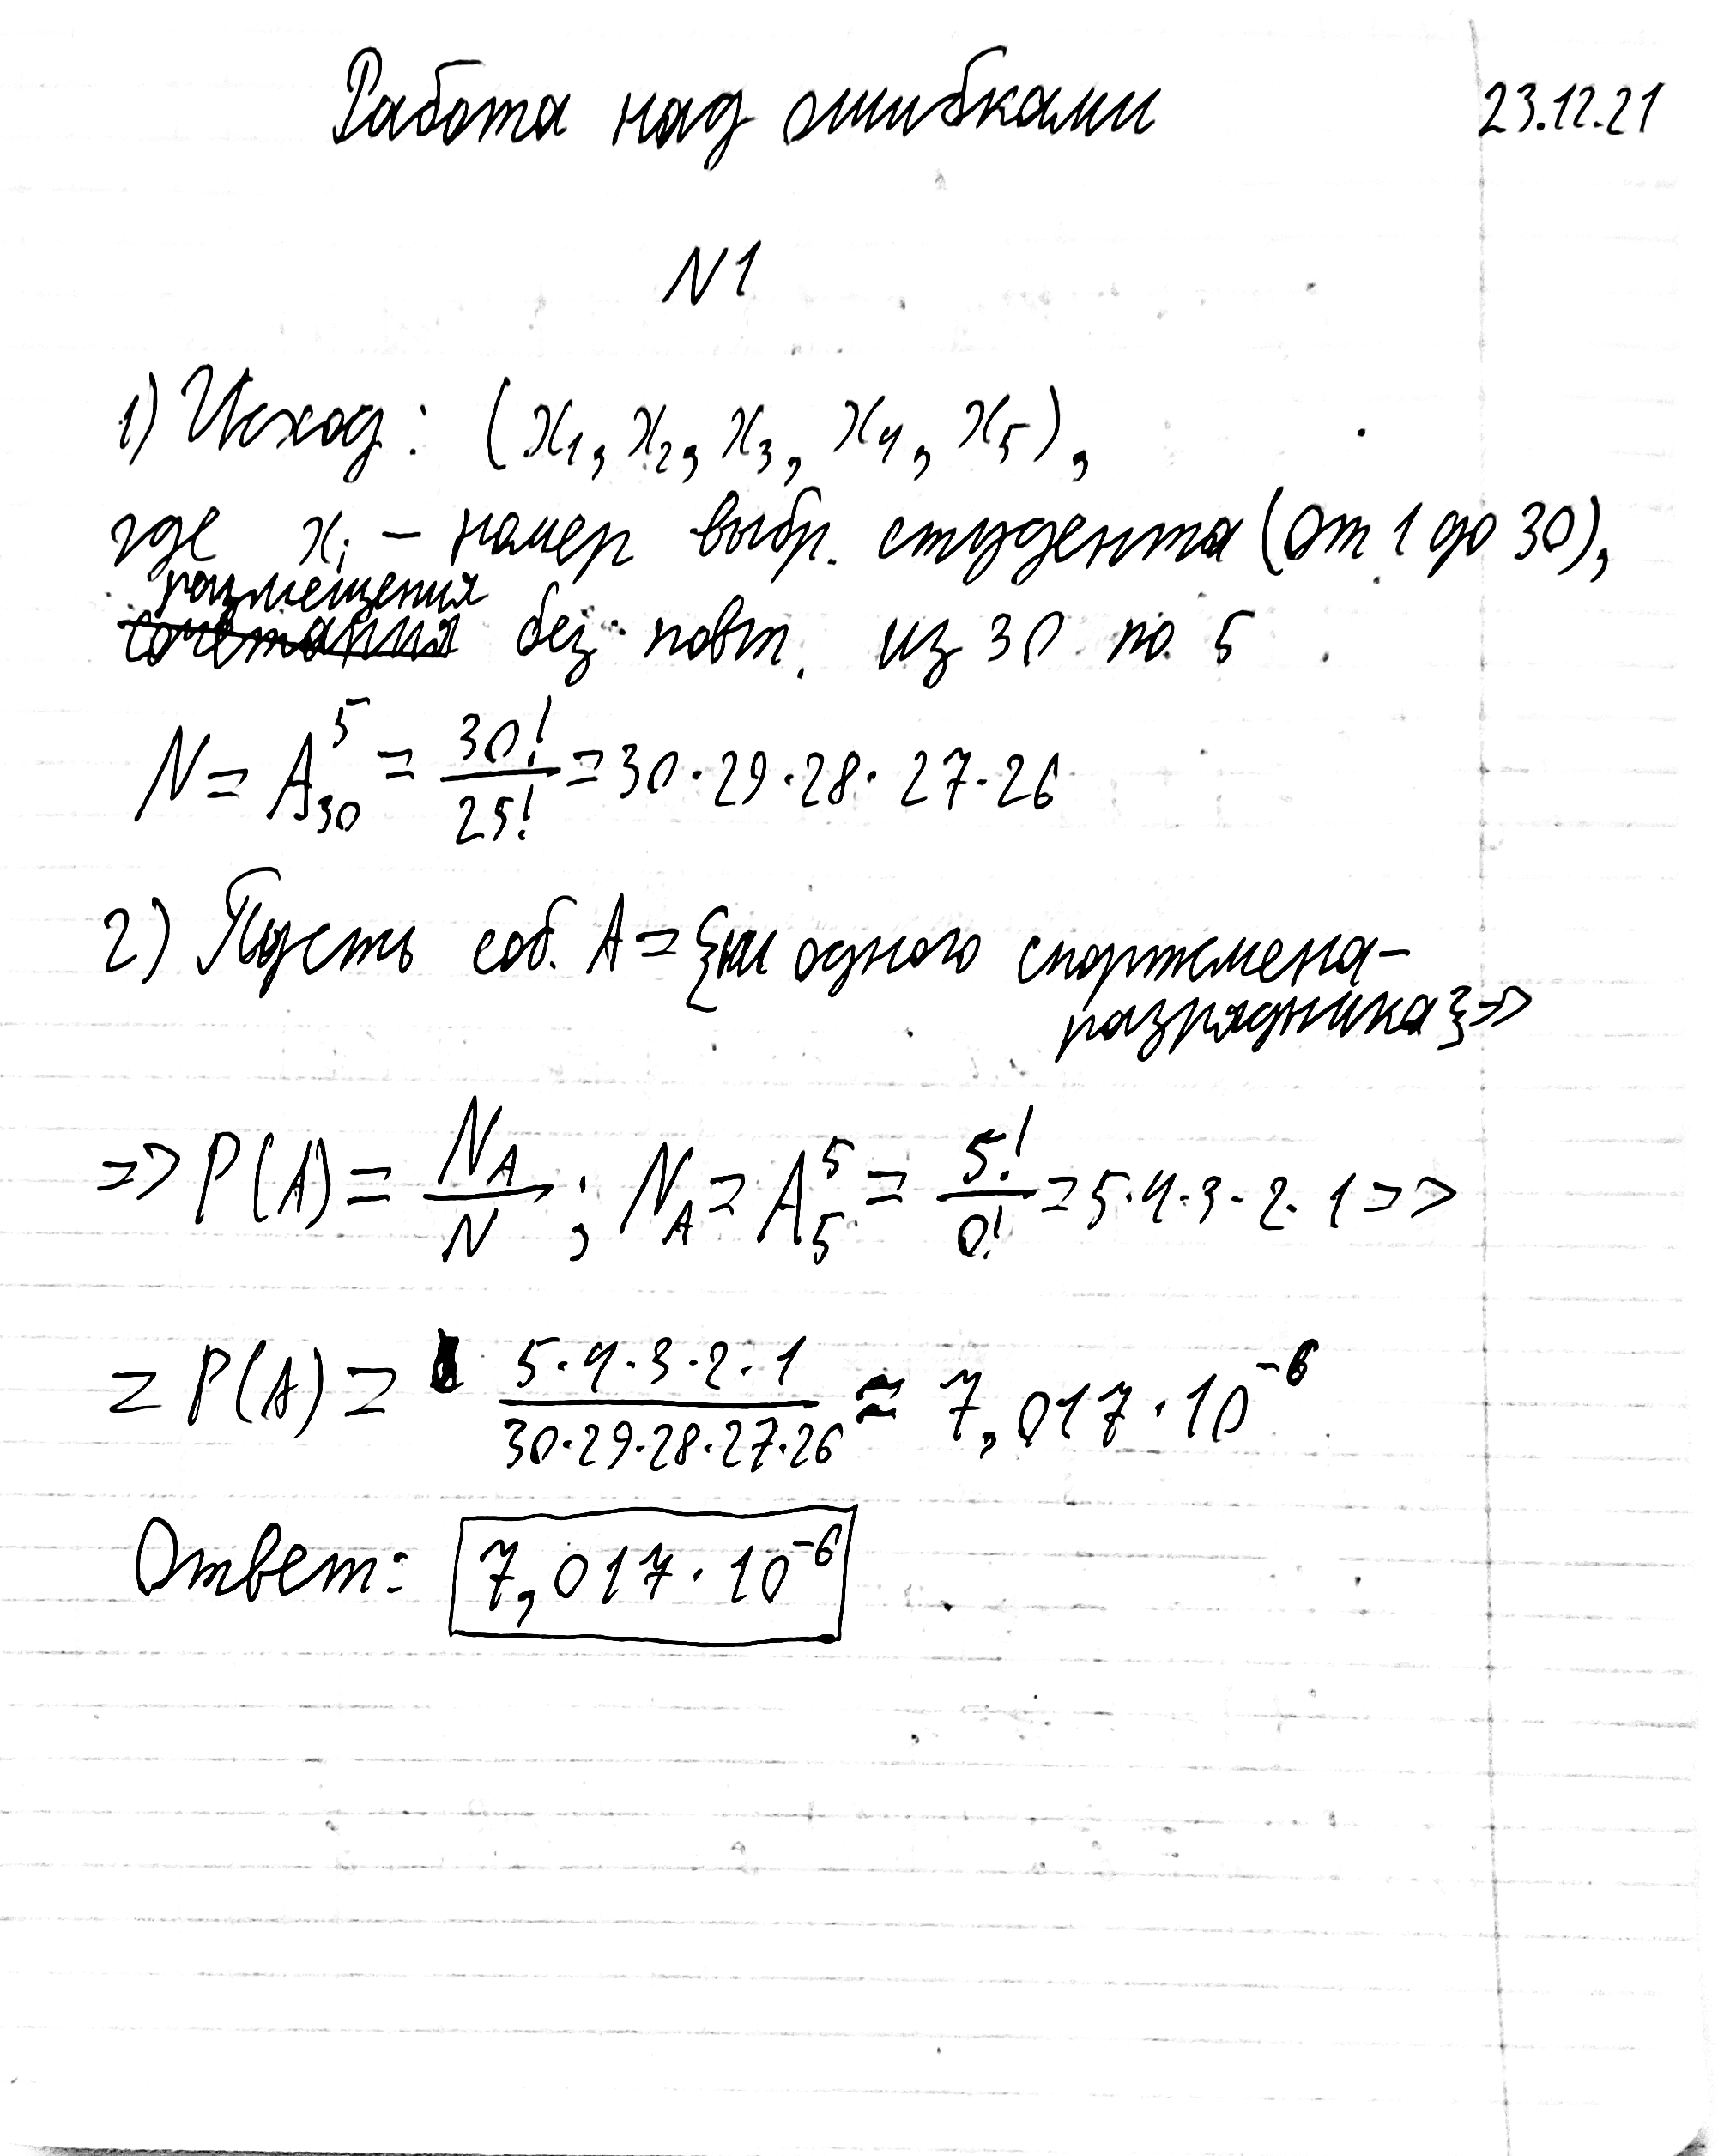 Работа над ошибками 23.12.21
N1
1) Исход: (x₁, x₂, x₃, x₄, x₅),
где xᵢ – номер выбр. студента (от 1 до 30),
размещения
сочетания без повт. из 30 по 5
N = A₃₀⁵ = 30!/25! = 30·29·28·27·26
2) Пусть соб. A = {ни одного спортсмена-
разрядника} =>
=> P(A) = N_A/N ; N_A = A₅⁵ = 5!/0! = 5·4·3·2·1 =>
= P(A) = 5·4·3·2·1/30·29·28·27·26 ≈ 7,017·10⁻⁶
Ответ: 7,017·10⁻⁶